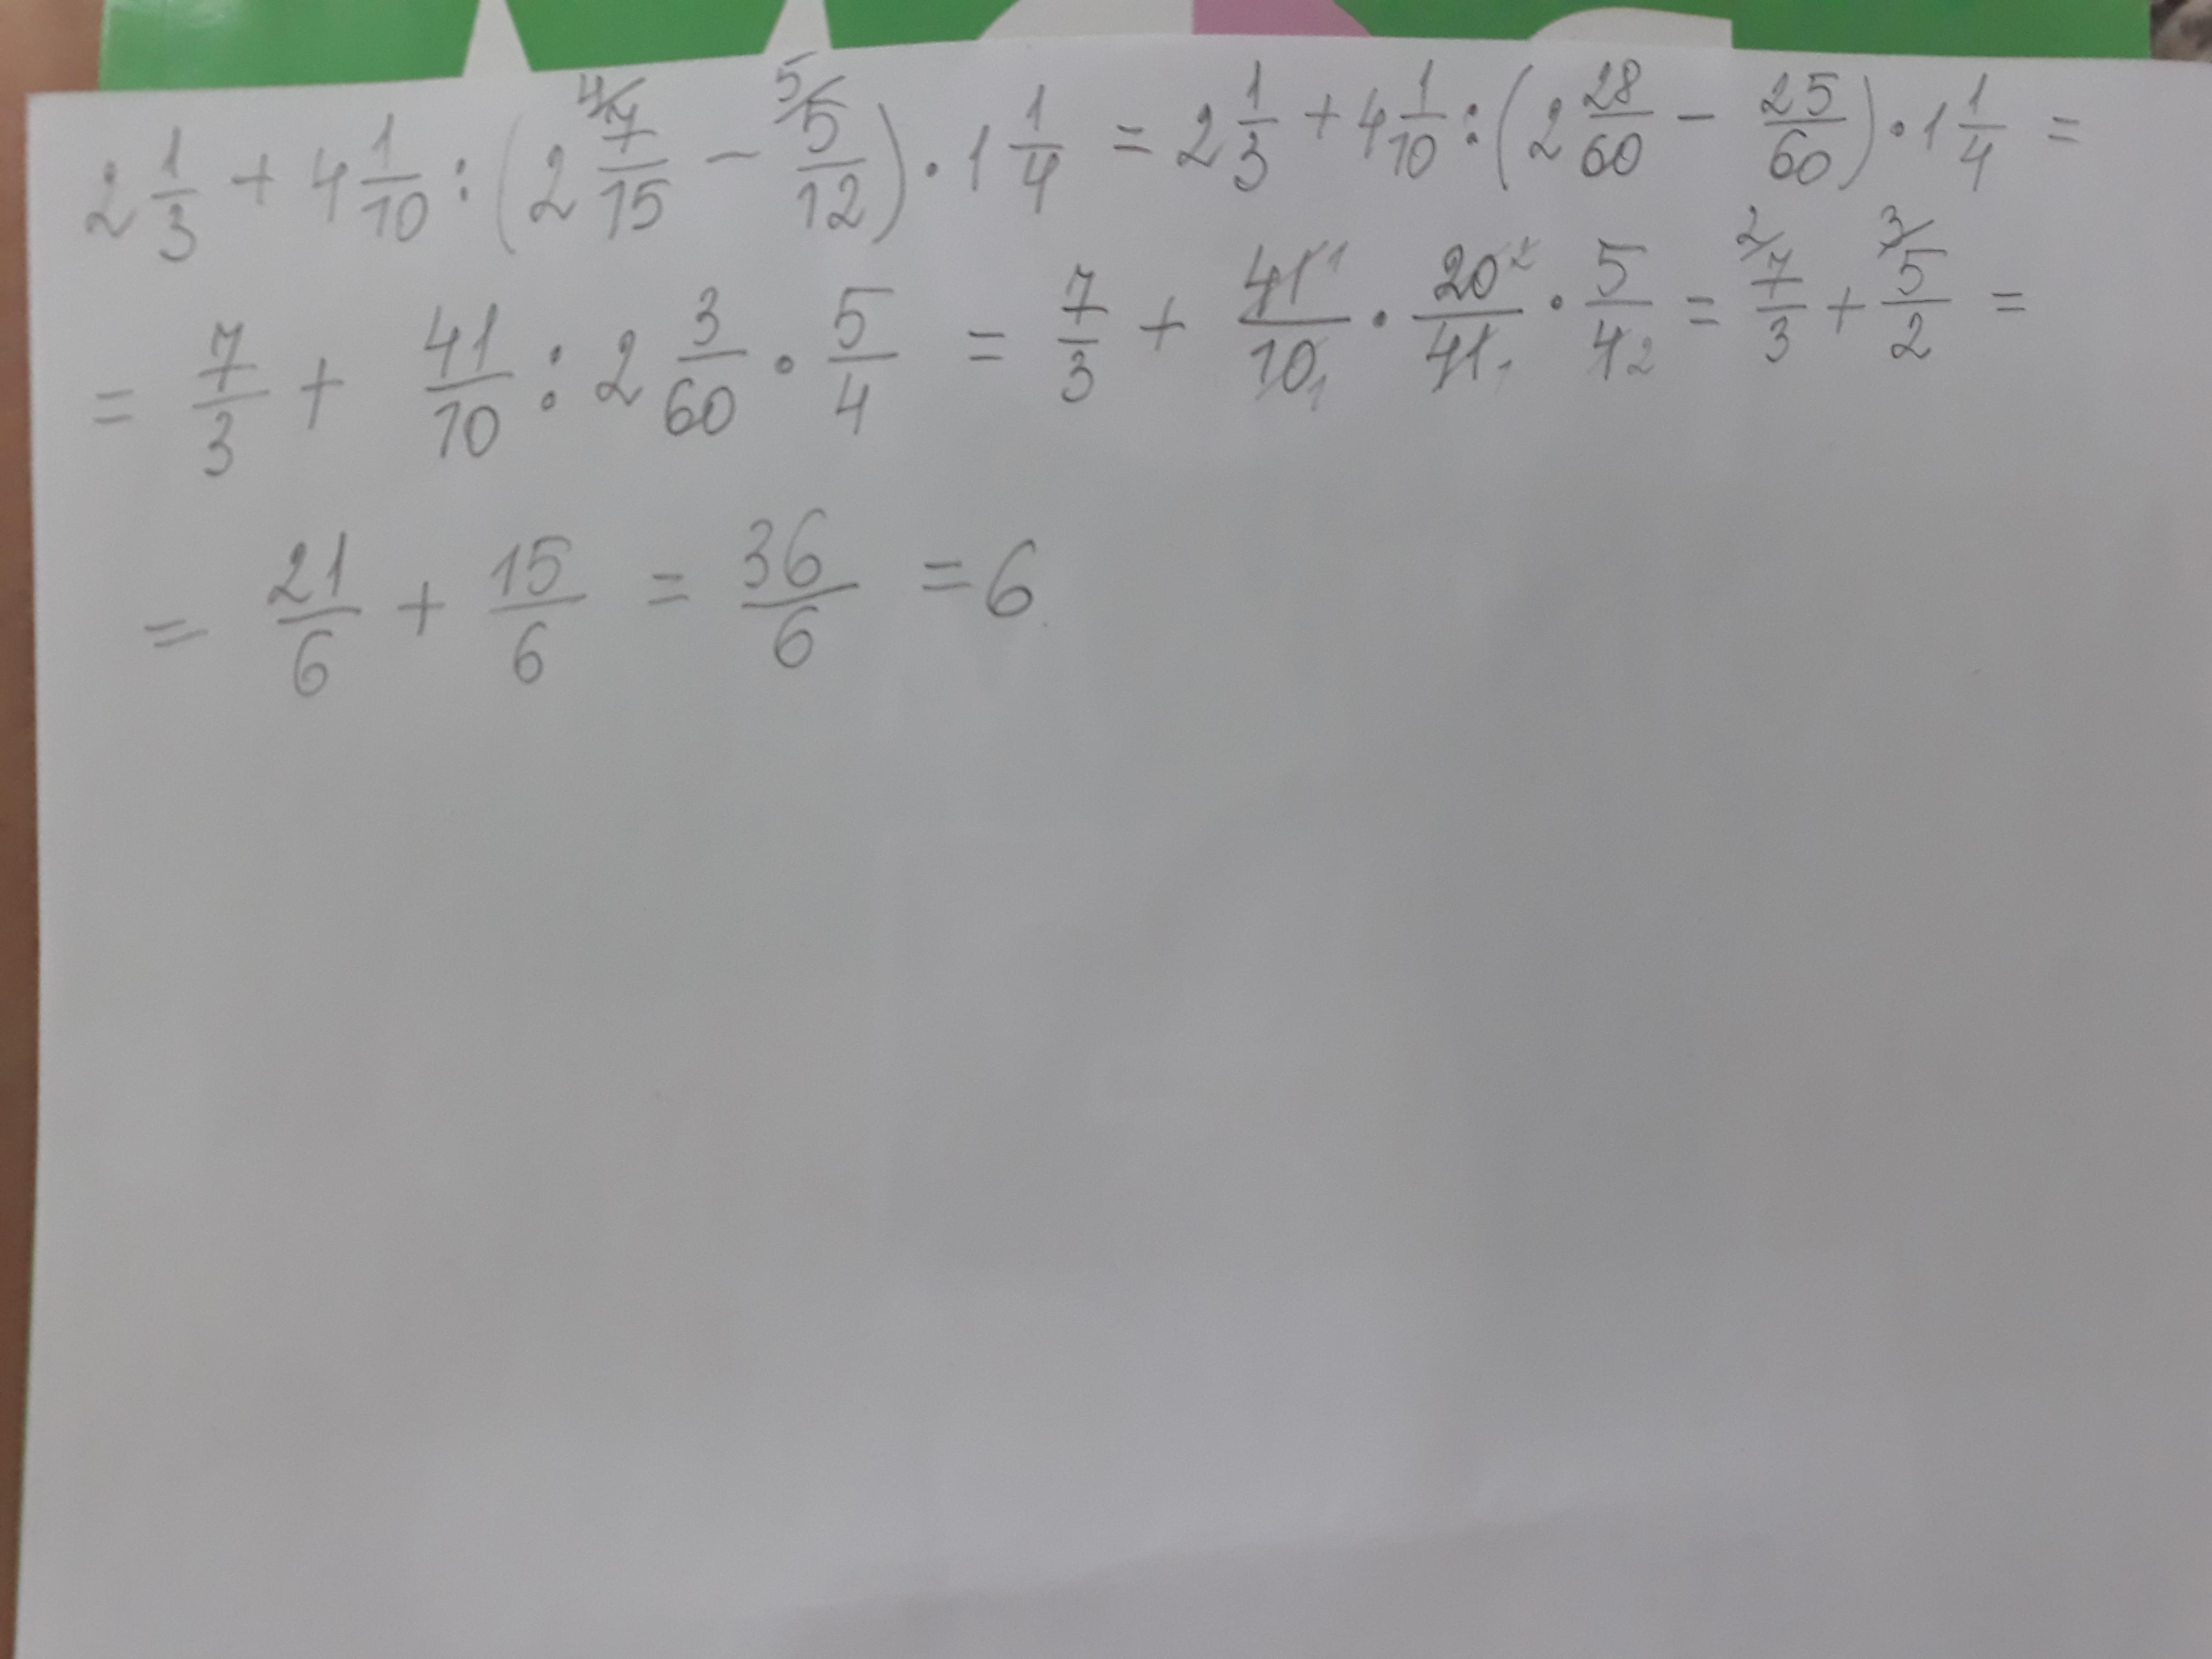 2 1/3 + 4 1/10 : (2 7/15 - 5/12) · 1 1/4 = 2 1/3 + 4 1/10 : (2 28/60 - 25/60) · 1 1/4 =
= 7/3 + 41/10 : 2 3/60 · 5/4 = 7/3 + 41/10 · 20/41 · 5/4 = 7/3 + 5/2 =
= 21/6 + 15/6 = 36/6 = 6